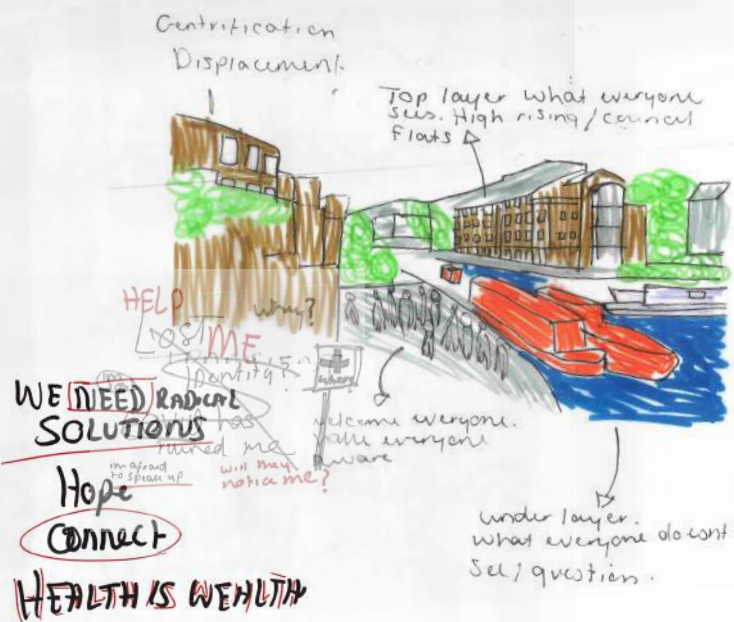 Gentrification
Displacement.
Top layer what everyone
sees. High rising/council
flats
HELP
why?
Lost
ME
identity?
where
WE NEED RADICAL
SOLUTIONS
has
ruined me
welcome everyone.
make everyone
aware
im afraid
to speak up
will they
notice me?
Hope
connect
HEALTH IS WEALTH
under layer.
what everyone doesnt
see/question.